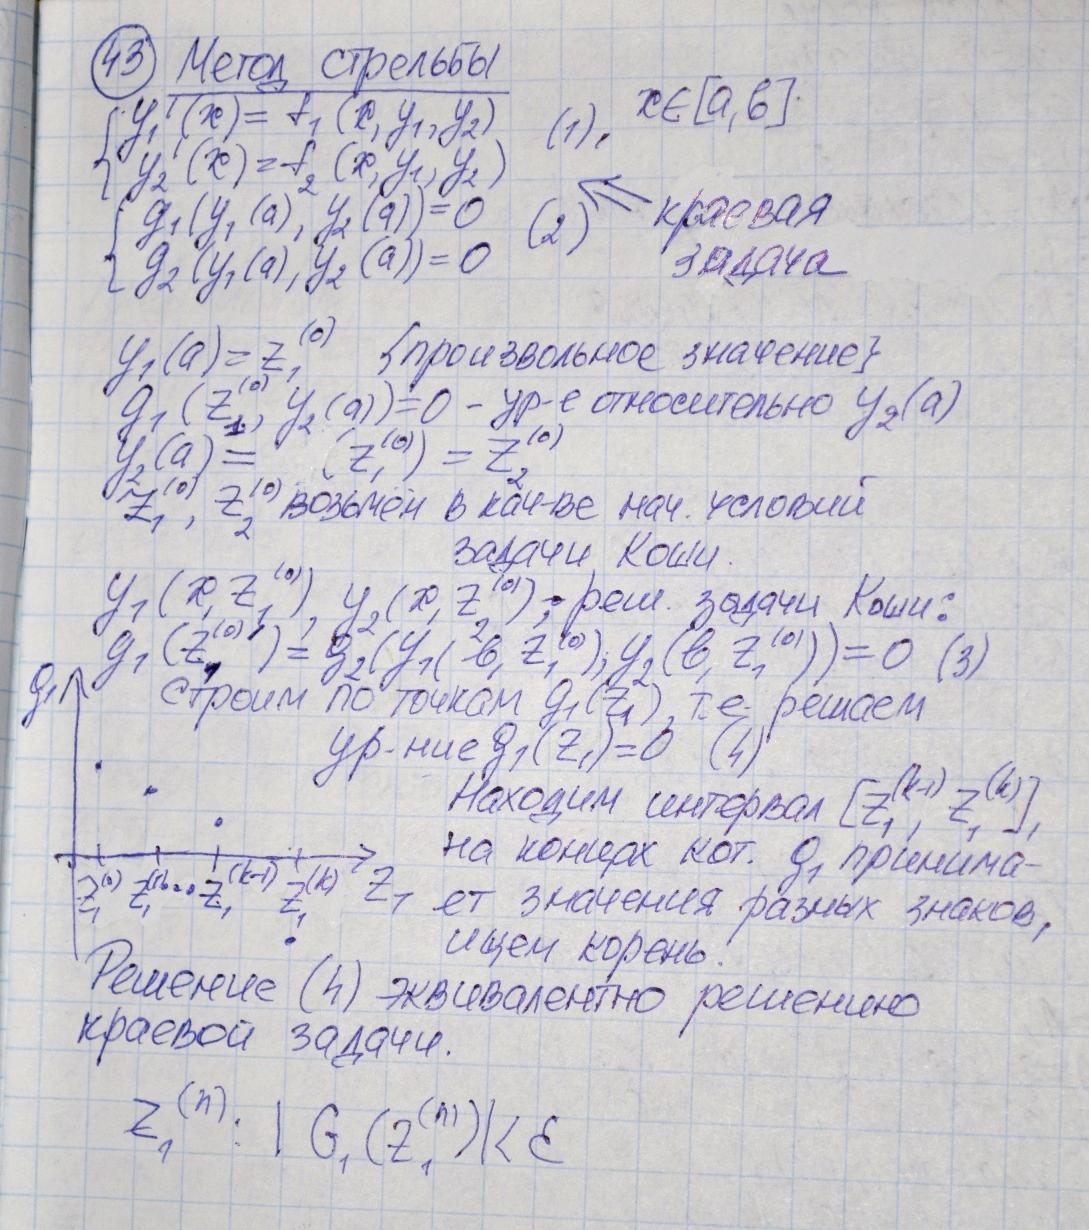 43 Метод стрельбы
y₁'(x) = f₁(x, y₁, y₂)
(1), x∈[a,b].
y₂'(x) = f₂(x, y₁, y₂)
g₁(y₁(a), y₂(a)) = 0
(2) краевая
g₂(y₁(a), y₂(a)) = 0
задача
y₁(a) = z₁⁽⁰⁾ {произвольное значение}
g₁(z₁⁽⁰⁾, y₂(a)) = 0 – ур-е относительно y₂(a)
y₂(a) = (z₁⁽⁰⁾) = z₂⁽⁰⁾
z₁⁽⁰⁾, z₂⁽⁰⁾ возьмём в кач-ве нач. условий
задачи Коши.
y₁(x, z₁⁽⁰⁾), y₂(x, z₂⁽⁰⁾) - реш. задачи Коши:
g₁(z₁⁽⁰⁾) = g₂(y₁(b, z₁⁽⁰⁾), y₂(b, z₁⁽⁰⁾)) = 0 (3)
g₁ Строим по точкам g₁(z₁), т.е. решаем
ур-ние g₁(z₁) = 0 (4)
Находим интервал [z₁⁽ᵏ⁻¹⁾, z₁⁽ᵏ⁾],
на концах кот. g₁ принима-
z₁⁽⁰⁾ z₁⁽¹⁾ ... z₁⁽ᵏ⁻¹⁾ z₁⁽ᵏ⁾ z₁
ет значения разных знаков,
ищем корень.
Решение (4) эквивалентно решению
краевой задачи.
z₁⁽ⁿ⁾: |G₁(z₁⁽ⁿ⁾)| < ε